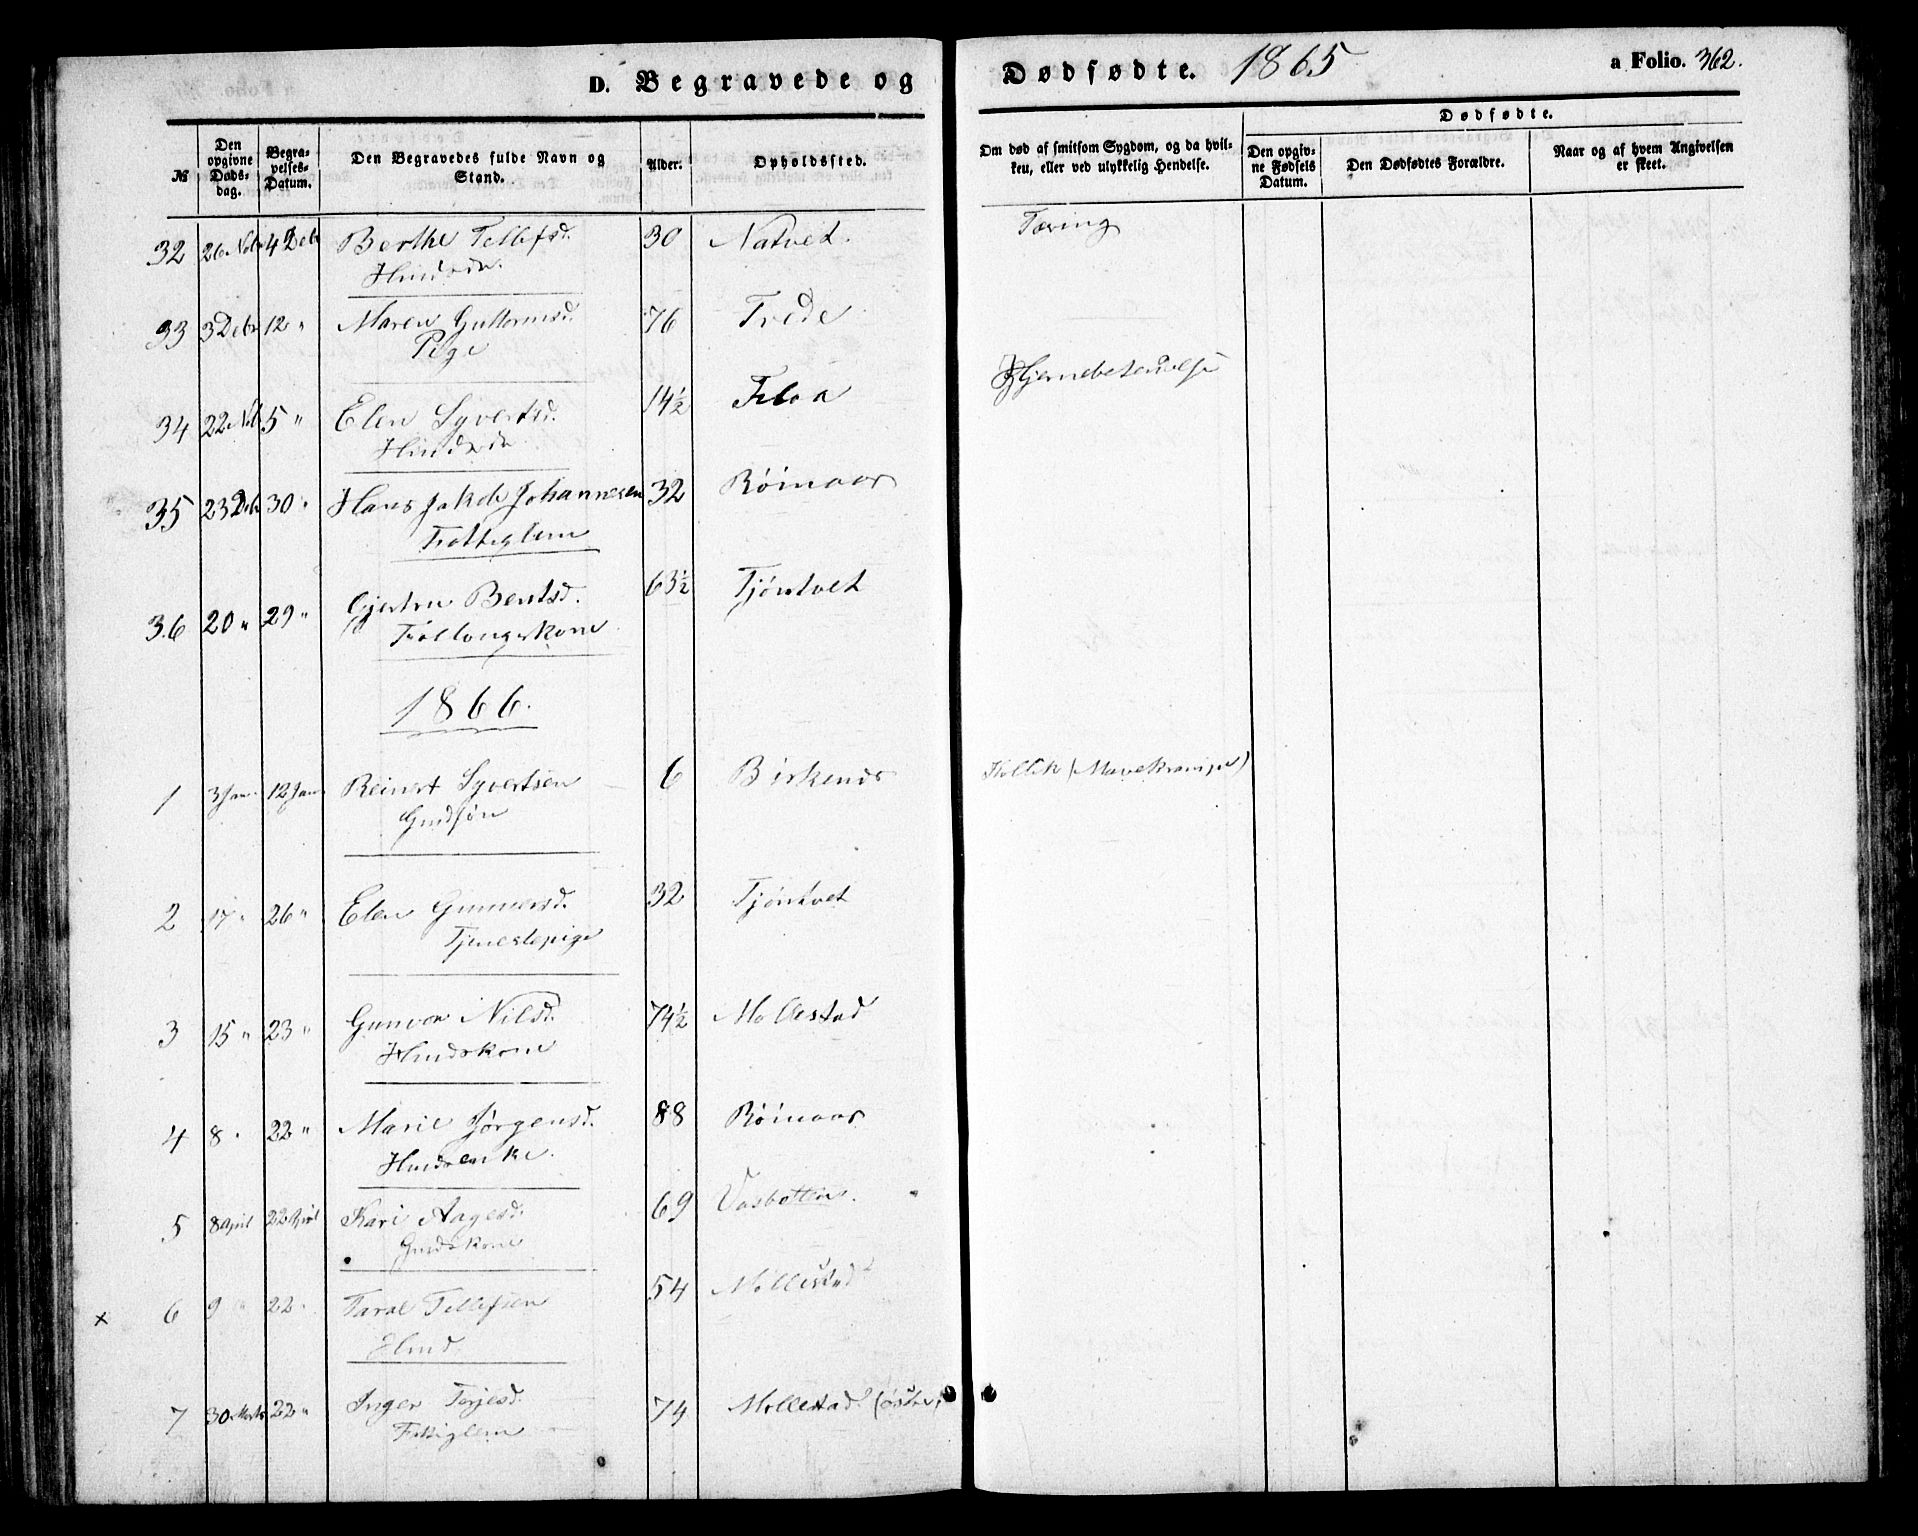 D. Begravede og Dødfødte. 1865 a Folio. 362.
№ | Den opgivne Døds-dag. | Begra-velses-Datum. | Den Begravedes fulde Navn og Stand. | Alder. | Opholdssted. | Om død af smitsom Sygdom, og da hvil-ken, eller ved ulykkelig Hendelse. | Dødfødte.
Den opgiv-ne Fødsels Datum. | Den Dødfødtes Forældre. | Naar og af hvem Angivelsen er skeet.
32 26 Nobr 4 Debr Berthe Tellefsd. 30 Natved. Tæring
33 3 Debr 12 " Maren Guttormsd. 76 Trede
Pige
34 22 Nob 5 " Elen Syvertsd. 14½ Floa Hjernebetændelse
35 23 Deb 30 " Hans Jakob Johannesen 32 Röinaas
Fattiglem
36 20 " 29 " Gjertru Bentsd. 63½ Tjöntvet
Föllougskone
1866.
1 3 Jan. 12 Jan Reinert Syvertsen 6 Birkenes Kollik (Mavekrampe)
Gmdsön
2 17 " 26 " Elen Gunnersd. 32 Tjöntvet
Tjenestepige
3 15 " 23 " Gunvor Nilsd. 74½ Mollestad
Hmdskone
4 8 " 22 " Marie Jörgensd. 88 Röinaas
Hmdsenke.
5 8 April 22 April Kari Aagesd. 69 Vasbotten.
Gmdskone
x 6 9 " 22 " Taral Tellefsen 54 Mollestad
Hmd.
7 30 Marts 22 " Inger Terjesd. 74 Mollestad (östre)
Fattiglem